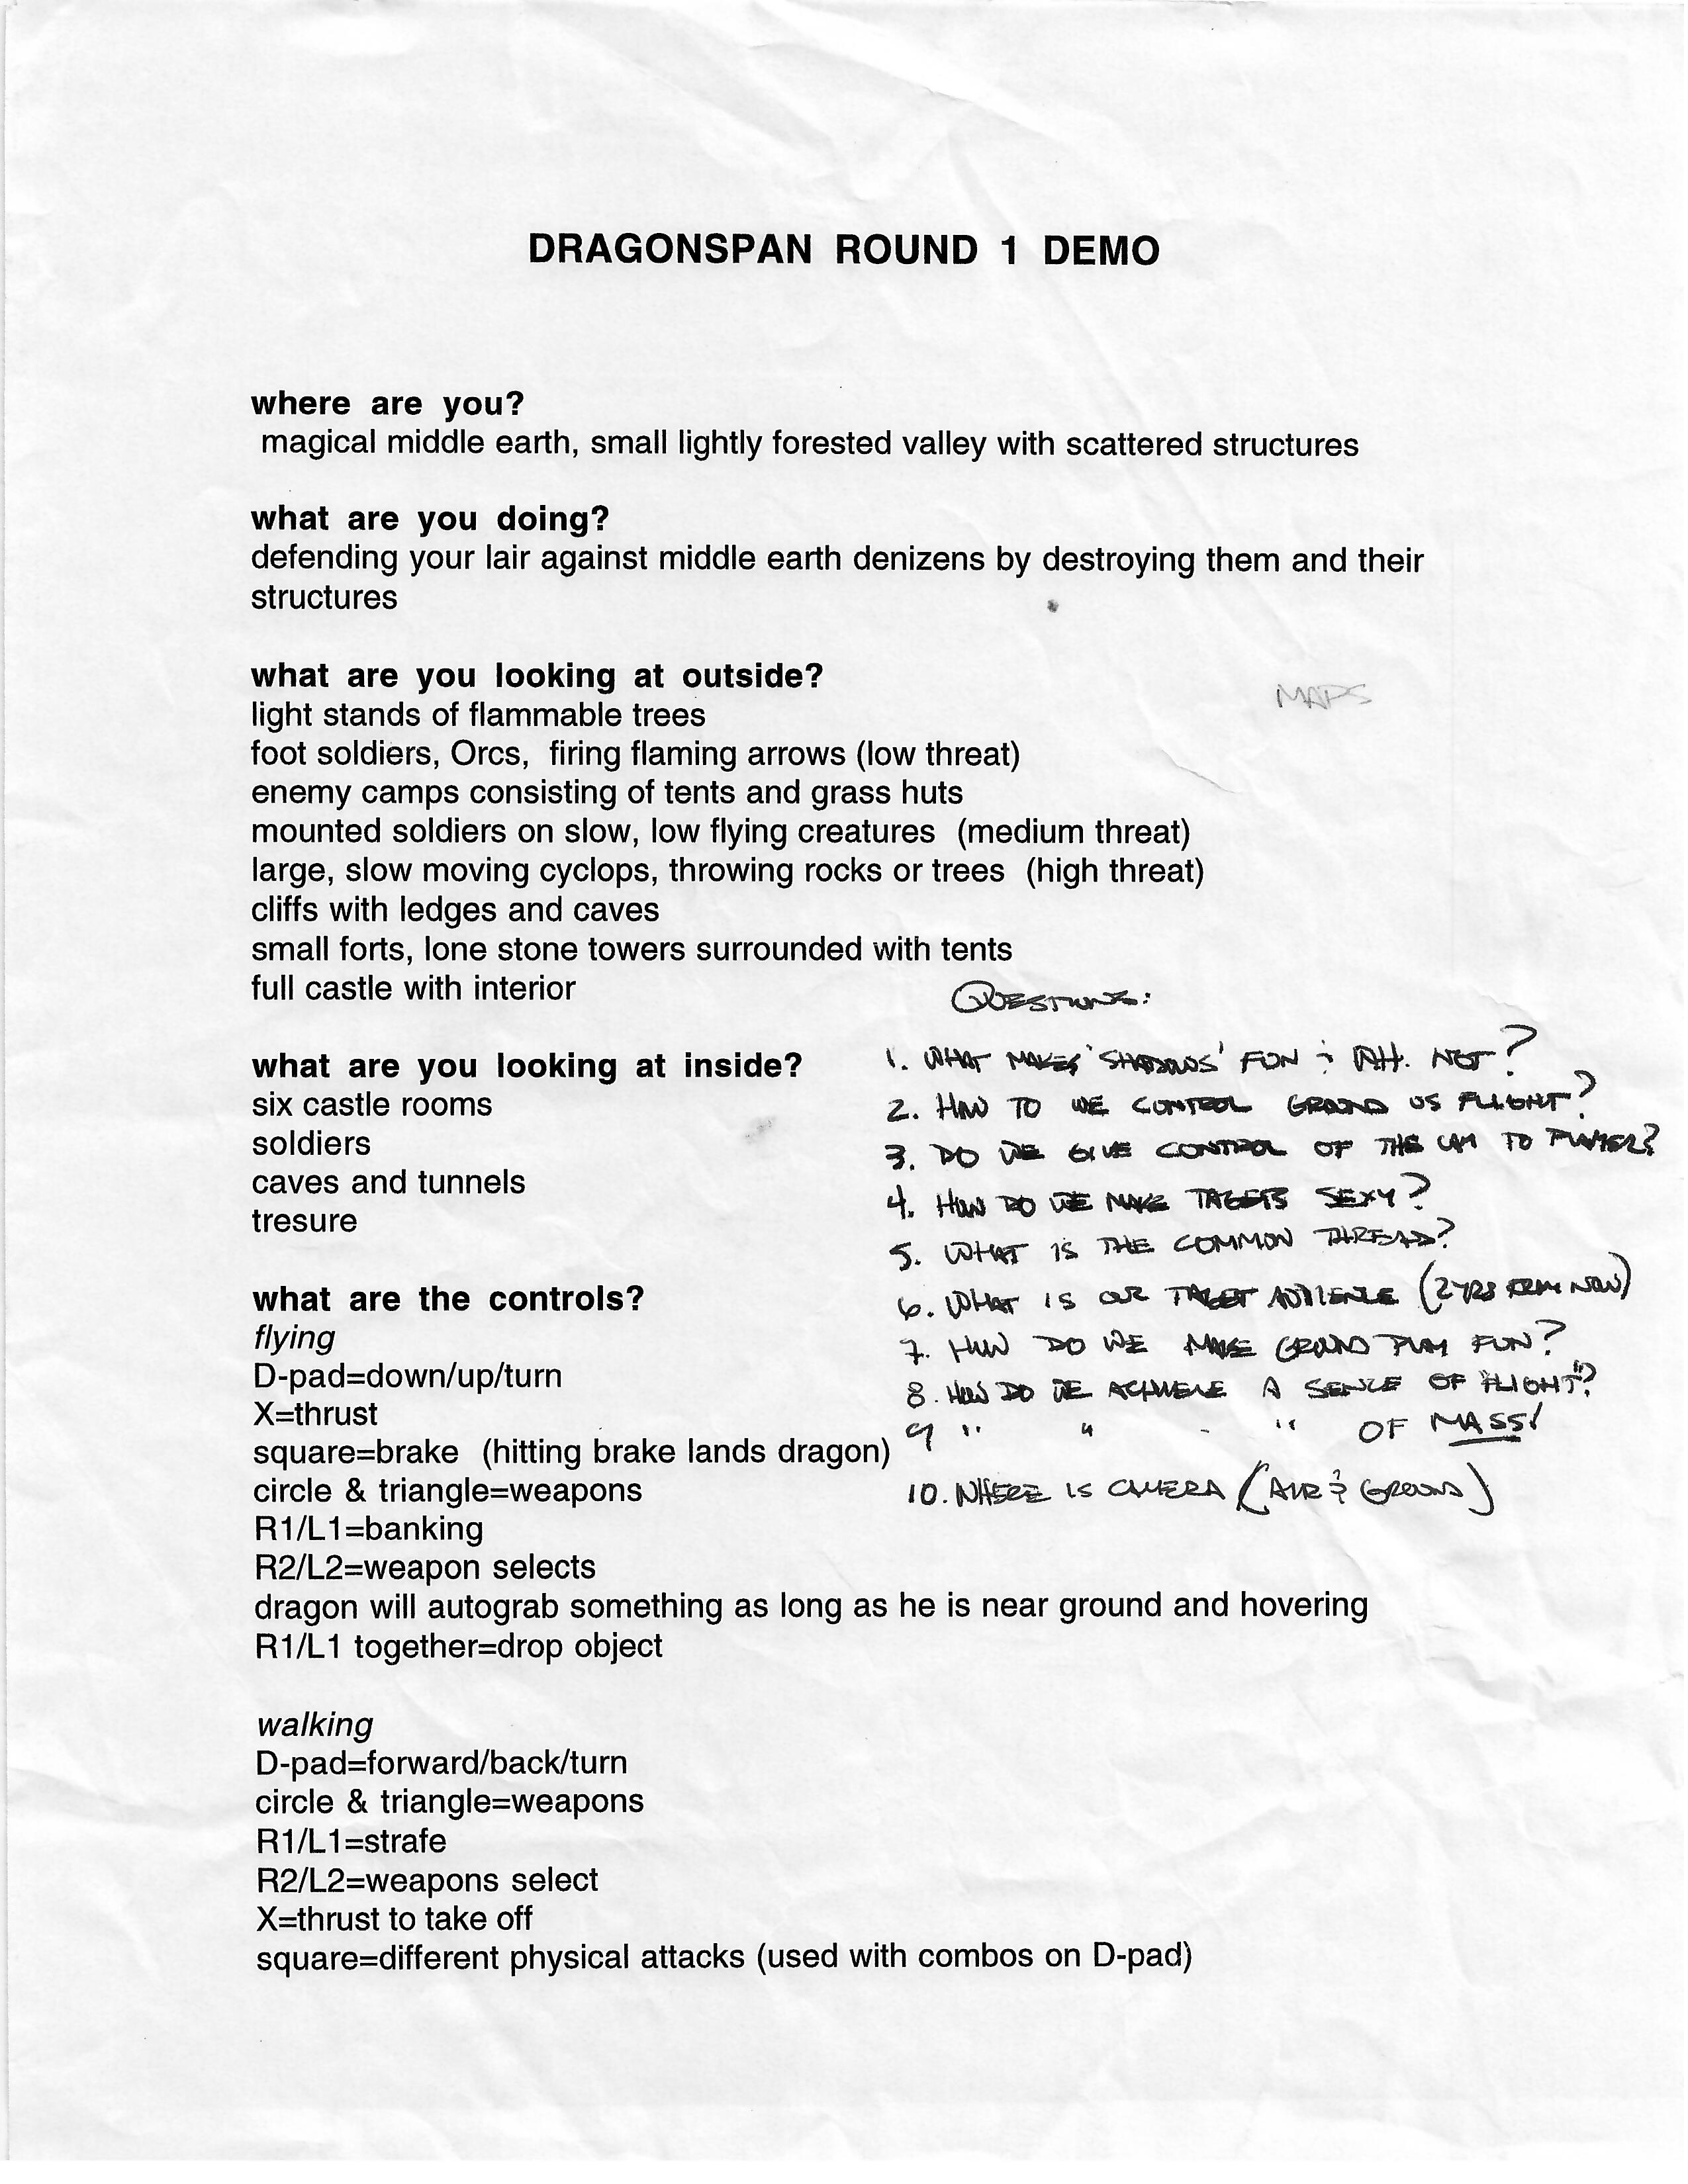 DRAGONSPAN ROUND 1 DEMO
where are you?
magical middle earth, small lightly forested valley with scattered structures
what are you doing?
defending your lair against middle earth denizens by destroying them and their
structures
what are you looking at outside?
light stands of flammable trees
MAPS
foot soldiers, Orcs, firing flaming arrows (low threat)
enemy camps consisting of tents and grass huts
mounted soldiers on slow, low flying creatures (medium threat)
large, slow moving cyclops, throwing rocks or trees (high threat)
cliffs with ledges and caves
small forts, lone stone towers surrounded with tents
full castle with interior
what are you looking at inside?
six castle rooms
soldiers
caves and tunnels
tresure
what are the controls?
flying
D-pad=down/up/turn
X=thrust
square=brake (hitting brake lands dragon)
circle & triangle=weapons
R1/L1=banking
R2/L2=weapon selects
dragon will autograb something as long as he is near ground and hovering
R1/L1 together=drop object
walking
D-pad=forward/back/turn
circle & triangle=weapons
R1/L1=strafe
R2/L2=weapons select
X=thrust to take off
square=different physical attacks (used with combos on D-pad)
QUESTIONS:
1. WHAT MAKES 'SHADOWS' FUN & NOT?
2. HOW TO WE CONTROL GROUND VS FLIGHT?
3. DO WE GIVE CONTROL OF THE CAM TO PLAYER?
4. HOW DO WE MAKE TARGETS SEXY?
5. WHAT IS THE COMMON THREAD?
6. WHAT IS OUR TARGET AUDIENCE (2 YRS FROM NOW)
7. HOW DO WE MAKE GROUND PLAY FUN?
8. HOW DO WE ACHIEVE A SENSE OF "FLIGHT"?
9 " " " " OF MASS!
10. WHERE IS CAMERA (AIR & GROUND)